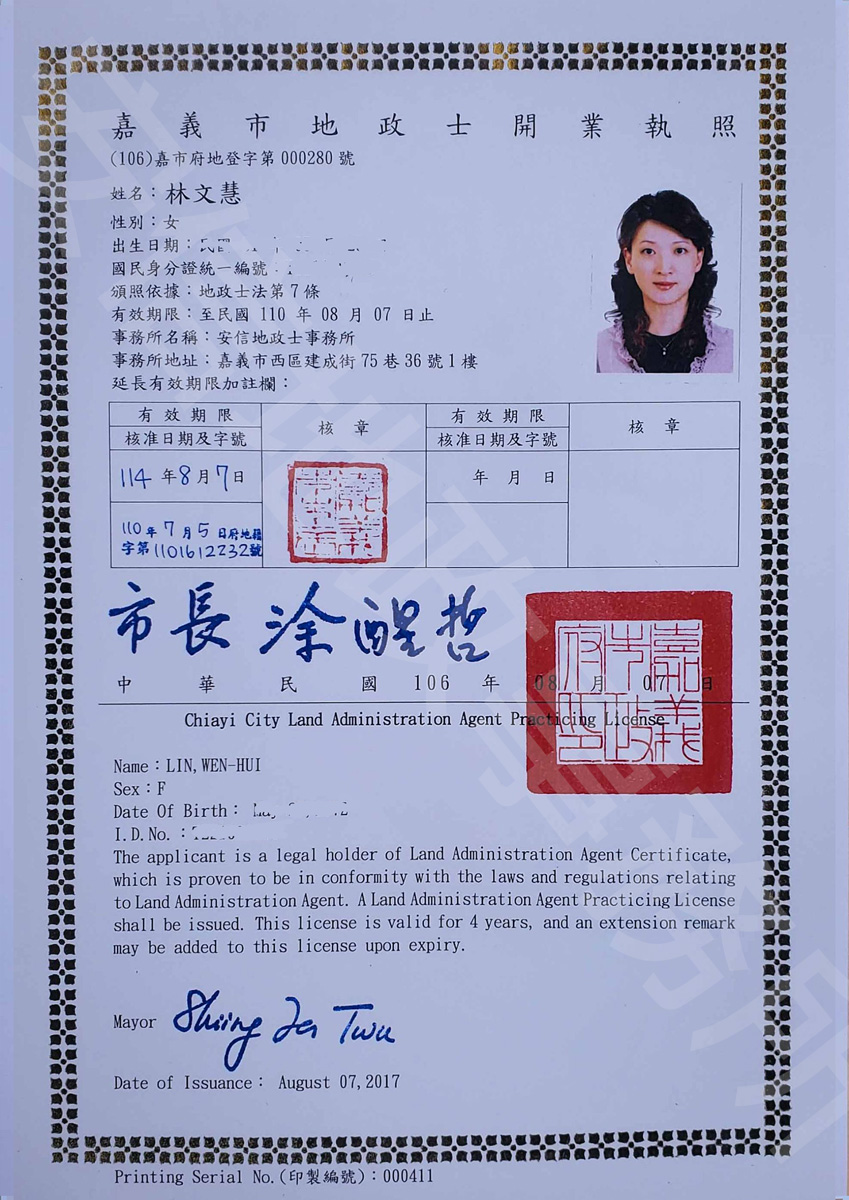 嘉義市地政士開業執照
(106)嘉市府地登字第000280號
姓名：林文慧
性別：女
出生日期：民國
國民身分證統一編號：
頒照依據：地政士法第7條
有效期限：至民國 110 年 08 月 07 日止
事務所名稱：安信地政士事務所
事務所地址：嘉義市西區建成街75巷36號1樓
延長有效期限加註欄：
有效期限 核章 有效期限 核章
核准日期及字號 核准日期及字號
114年8月7日 年 月 日
110年7月5日府地籍
字第1101612232號
市長 涂醒哲
中華民國 106 年 08 月 07 日
嘉義市政府印
Chiayi City Land Administration Agent Practicing License
Name：LIN,WEN-HUI
Sex：F
Date Of Birth：
I.D.No.：
The applicant is a legal holder of Land Administration Agent Certificate,
which is proven to be in conformity with the laws and regulations relating
to Land Administration Agent. A Land Administration Agent Practicing License
shall be issued. This license is valid for 4 years, and an extension remark
may be added to this license upon expiry.
Mayor Shiing Jer Twu
Date of Issuance： August 07,2017
Printing Serial No.(印製編號)：000411